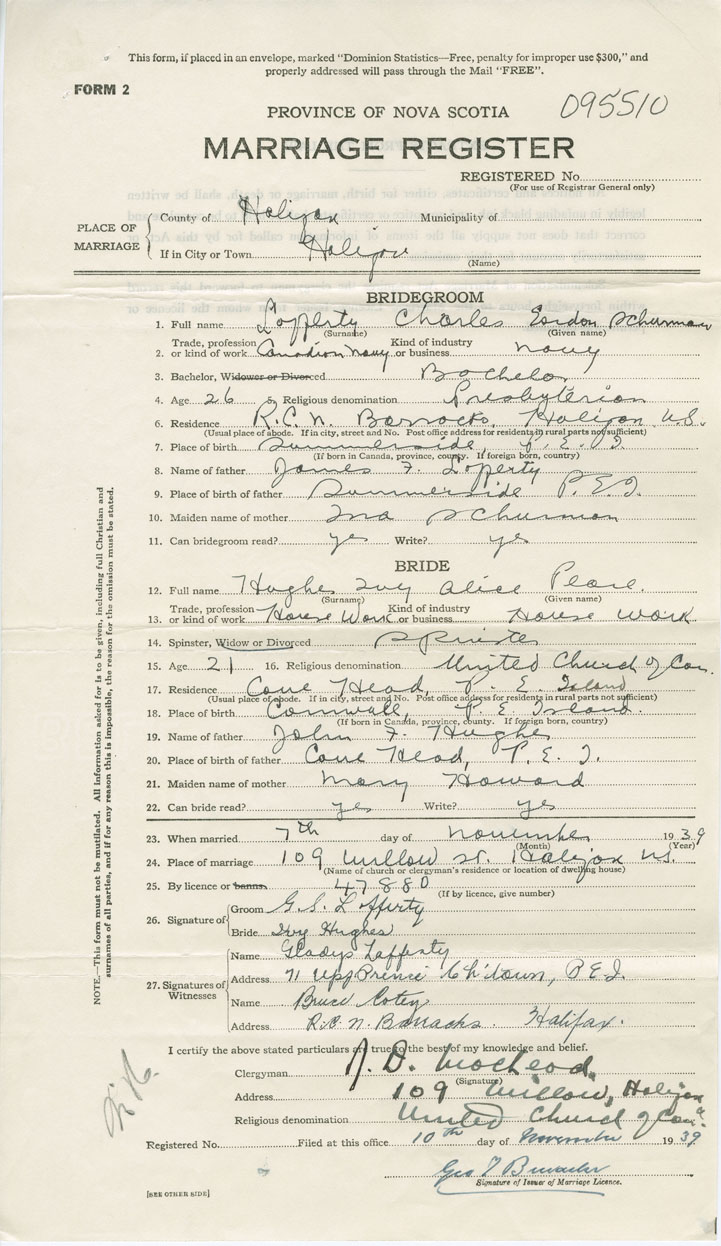 This form, if placed in an envelope, marked "Dominion Statistics—Free, penalty for improper use $300," and
properly addressed will pass through the Mail "FREE".
FORM 2
PROVINCE OF NOVA SCOTIA
095510
MARRIAGE REGISTER
REGISTERED No.
(For use of Registrar General only)
PLACE OF MARRIAGE
County of Halifax Municipality of
If in City or Town Halifax
(Name)
BRIDEGROOM
1. Full name Lafferty Charles Gordon Schurman
(Surname) (Given name)
2. Trade, profession or kind of work Canadian Navy Kind of industry or business Navy
3. Bachelor, Widower or Divorced Bachelor
4. Age 26 5. Religious denomination Presbyterian
6. Residence R.C.N. Barracks, Halifax N.S.
(Usual place of abode. If in city, street and No. Post office address for residents in rural parts not sufficient)
7. Place of birth Summerside, P. E. I.
(If born in Canada, province, county. If foreign born, country)
8. Name of father James F. Lafferty
9. Place of birth of father Summerside P.E.I.
10. Maiden name of mother Ina Schurman
11. Can bridegroom read? yes Write? yes
BRIDE
12. Full name Hughes Ivy Alice Pearl
(Surname) (Given name)
13. Trade, profession or kind of work House Work Kind of industry or business House work
14. Spinster, Widow or Divorced Spinster
15. Age 21 16. Religious denomination United Church of Can.
17. Residence Cove Head, P. E. Island
(Usual place of abode. If in city, street and No. Post office address for residents in rural parts not sufficient)
18. Place of birth Cornwall, P. E Island
(If born in Canada, province, county. If foreign born, country)
19. Name of father John F. Hughes
20. Place of birth of father Cove Head, P. E. I.
21. Maiden name of mother Mary Howard
22. Can bride read? yes Write? yes
23. When married 7th day of November 1939
(Month) (Year)
24. Place of marriage 109 Willow St. Halifax N.S.
(Name of church or clergyman's residence or location of dwelling house)
25. By licence or banns 47880
(If by licence, give number)
26. Signature of
Groom G.S. Lafferty
Bride Ivy Hughes
27. Signatures of Witnesses
Name Gladys Lafferty
Address 71 Upp Prince Ch'town, P.E.I.
Name Bruce
Address R.C.N. Barracks. Halifax.
I certify the above stated particulars are true to the best of my knowledge and belief.
Clergyman J. D. MacLeod.
(Signature)
Address 109 Willow, Halifax
Religious denomination United Church of Cana
Registered No. Filed at this office 10th day of November 1939
Geo
Signature of Issuer of Marriage Licence.
[SEE OTHER SIDE]
NOTE.—This form must not be mutilated. All information asked for is to be given, including full Christian and
surnames of all parties, and if for any reason this is impossible, the reason for the omission must be stated.